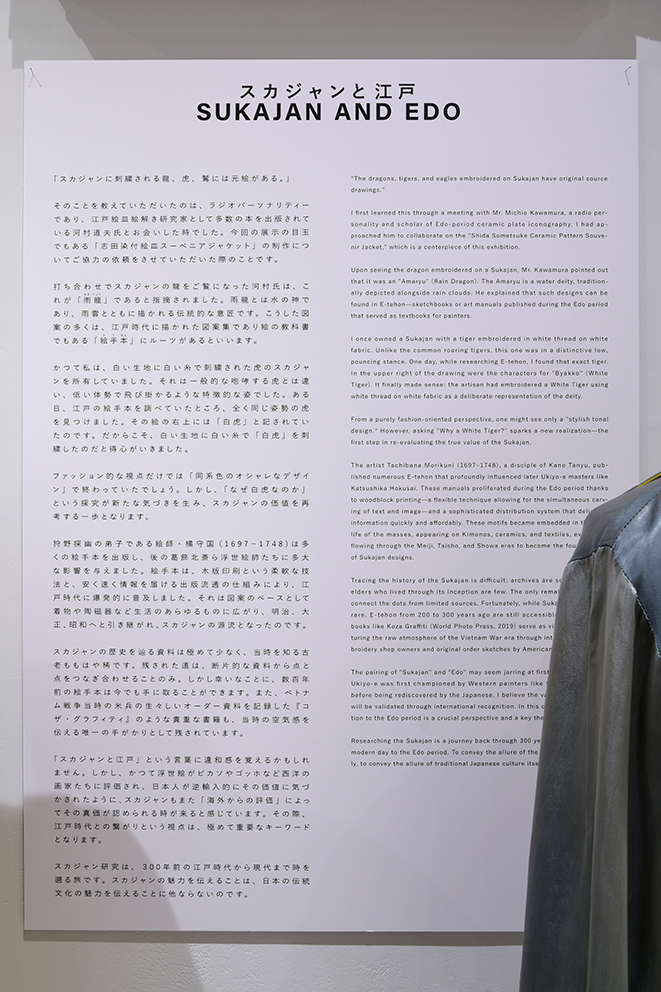 スカジャンと江戸
SUKAJAN AND EDO
「スカジャンに刺繍される龍、虎、鷲には元絵がある。」
そのことを教えていただいたのは、ラジオパーソナリティー
であり、江戸絵皿絵解き研究家として多数の本を出版されて
いる河村通夫氏とお会いした時でした。今回の展示の目玉
でもある「志田染付絵皿スーベニアジャケット」の制作につ
いてご協力の依頼をさせていただいた際のことです。
打ち合わせでスカジャンの龍をご覧になった河村氏は、こ
れが「雨龍」であると指摘されました。雨龍とは水の神で
あり、雨雲とともに描かれる伝統的な意匠です。こうした図
案の多くは、江戸時代に描かれた図案集であり絵の教科書
でもある「絵手本」にルーツがあるといいます。
かつて私は、白い生地に白い糸で刺繍された虎のスカジャ
ンを所有していました。それは一般的な咆哮する虎とは違
い、低い体勢で飛び掛かるような特徴的な姿でした。ある
日、江戸の絵手本を調べていたところ、全く同じ姿勢の虎
を見つけました。その絵の右上には「白虎」と記されてい
たのです。だからこそ、白い生地に白い糸で「白虎」を刺
繍したのだと得心がいきました。
ファッション的な視点だけでは「同系色のオシャレなデザイ
ン」で終わっていたでしょう。しかし、「なぜ白虎なのか」
という探究が新たな気づきを生み、スカジャンの価値を再
考する一歩となります。
狩野探幽の弟子である絵師・橘守国（1697−1748）は多
くの絵手本を出版し、後の葛飾北斎ら浮世絵師たちに多大
な影響を与えました。絵手本は、木版印刷という柔軟な技
法と、安く速く情報を届ける出版流通の仕組みにより、江
戸時代に爆発的に普及しました。それは図案のベースとして
着物や陶磁器など生活のあらゆるものに広がり、明治、大
正、昭和へと引き継がれ、スカジャンの源流となったのです。
スカジャンの歴史を辿る資料は極めて少なく、当時を知る古
老ももはや稀です。残された道は、断片的な資料から点と
点をつなぎ合わせることのみ。しかし幸いなことに、数百年
前の絵手本は今でも手に取ることができます。また、ベトナ
ム戦争当時の米兵の生々しいオーダー資料を記録した『コ
ザ・グラフィティ』のような貴重な書籍も、当時の空気感を
伝える唯一の手がかりとして残されています。
「スカジャンと江戸」という言葉に違和感を覚えるかもしれ
ません。しかし、かつて浮世絵がピカソやゴッホなど西洋の
画家たちに評価され、日本人が逆輸入的にその価値に気づ
かされたように、スカジャンもまた「海外からの評価」によっ
てその真価が認められる時が来ると感じています。その際、
江戸時代との繋がりという視点は、極めて重要なキーワード
となります。
スカジャン研究は、300年前の江戸時代から現代まで時を
遡る旅です。スカジャンの魅力を伝えることは、日本の伝統
文化の魅力を伝えることに他ならないのです。
"The dragons, tigers, and eagles embroidered on Sukajan have original source
drawings."
I first learned this through a meeting with Mr. Michio Kawamura, a radio per-
sonality and scholar of Edo-period ceramic plate iconography. I had ap-
proached him to collaborate on the "Shida Sometsuke Ceramic Pattern Souve-
nir Jacket," which is a centerpiece of this exhibition.
Upon seeing the dragon embroidered on a Sukajan, Mr. Kawamura pointed out
that it was an "Amaryu" (Rain Dragon). The Amaryu is a water deity, tradition-
ally depicted alongside rain clouds. He explained that such designs can be
found in E-tehon—sketchbooks or art manuals published during the Edo period
that served as textbooks for painters.
I once owned a Sukajan with a tiger embroidered in white thread on white
fabric. Unlike the common roaring tigers, this one was in a distinctive low,
pouncing stance. One day, while researching E-tehon, I found that exact tiger.
In the upper right of the drawing were the characters for "Byakko" (White
Tiger). It finally made sense: the artisan had embroidered a White Tiger using
white thread on white fabric as a deliberate representation of the deity.
From a purely fashion-oriented perspective, one might see only a "stylish tonal
design." However, asking "Why a White Tiger?" sparks a new realization—the
first step in re-evaluating the true value of the Sukajan.
The artist Tachibana Morikuni (1697–1748), a disciple of Kano Tanyu, pub-
lished numerous E-tehon that profoundly influenced later Ukiyo-e masters like
Katsushika Hokusai. These manuals proliferated during the Edo period thanks
to woodblock printing—a flexible technique allowing for the simultaneous carv-
ing of text and image—and a sophisticated distribution system that
information quickly and affordably. These motifs became embedded in
life of the masses, appearing on Kimonos, ceramics, and textiles,
flowing through the Meiji, Taisho, and Showa eras to become the
of Sukajan designs.
Tracing the history of the Sukajan is difficult; archives are
elders who lived through its inception are few. The only
connect the dots from limited sources. Fortunately, while
rare, E-tehon from 200 to 300 years ago are still
books like Koza Graffiti (World Photo Press, 2019) serve as
turing the raw atmosphere of the Vietnam War era through
broidery shop owners and original order sketches by
The pairing of "Sukajan" and "Edo" may seem jarring at
Ukiyo-e was first championed by Western painters like
before being rediscovered by the Japanese, I believe the
will be validated through international recognition. In this
tion to the Edo period is a crucial perspective and a key
Researching the Sukajan is a journey back through 300
modern day to the Edo period. To convey the allure of the
ly, to convey the allure of traditional Japanese culture